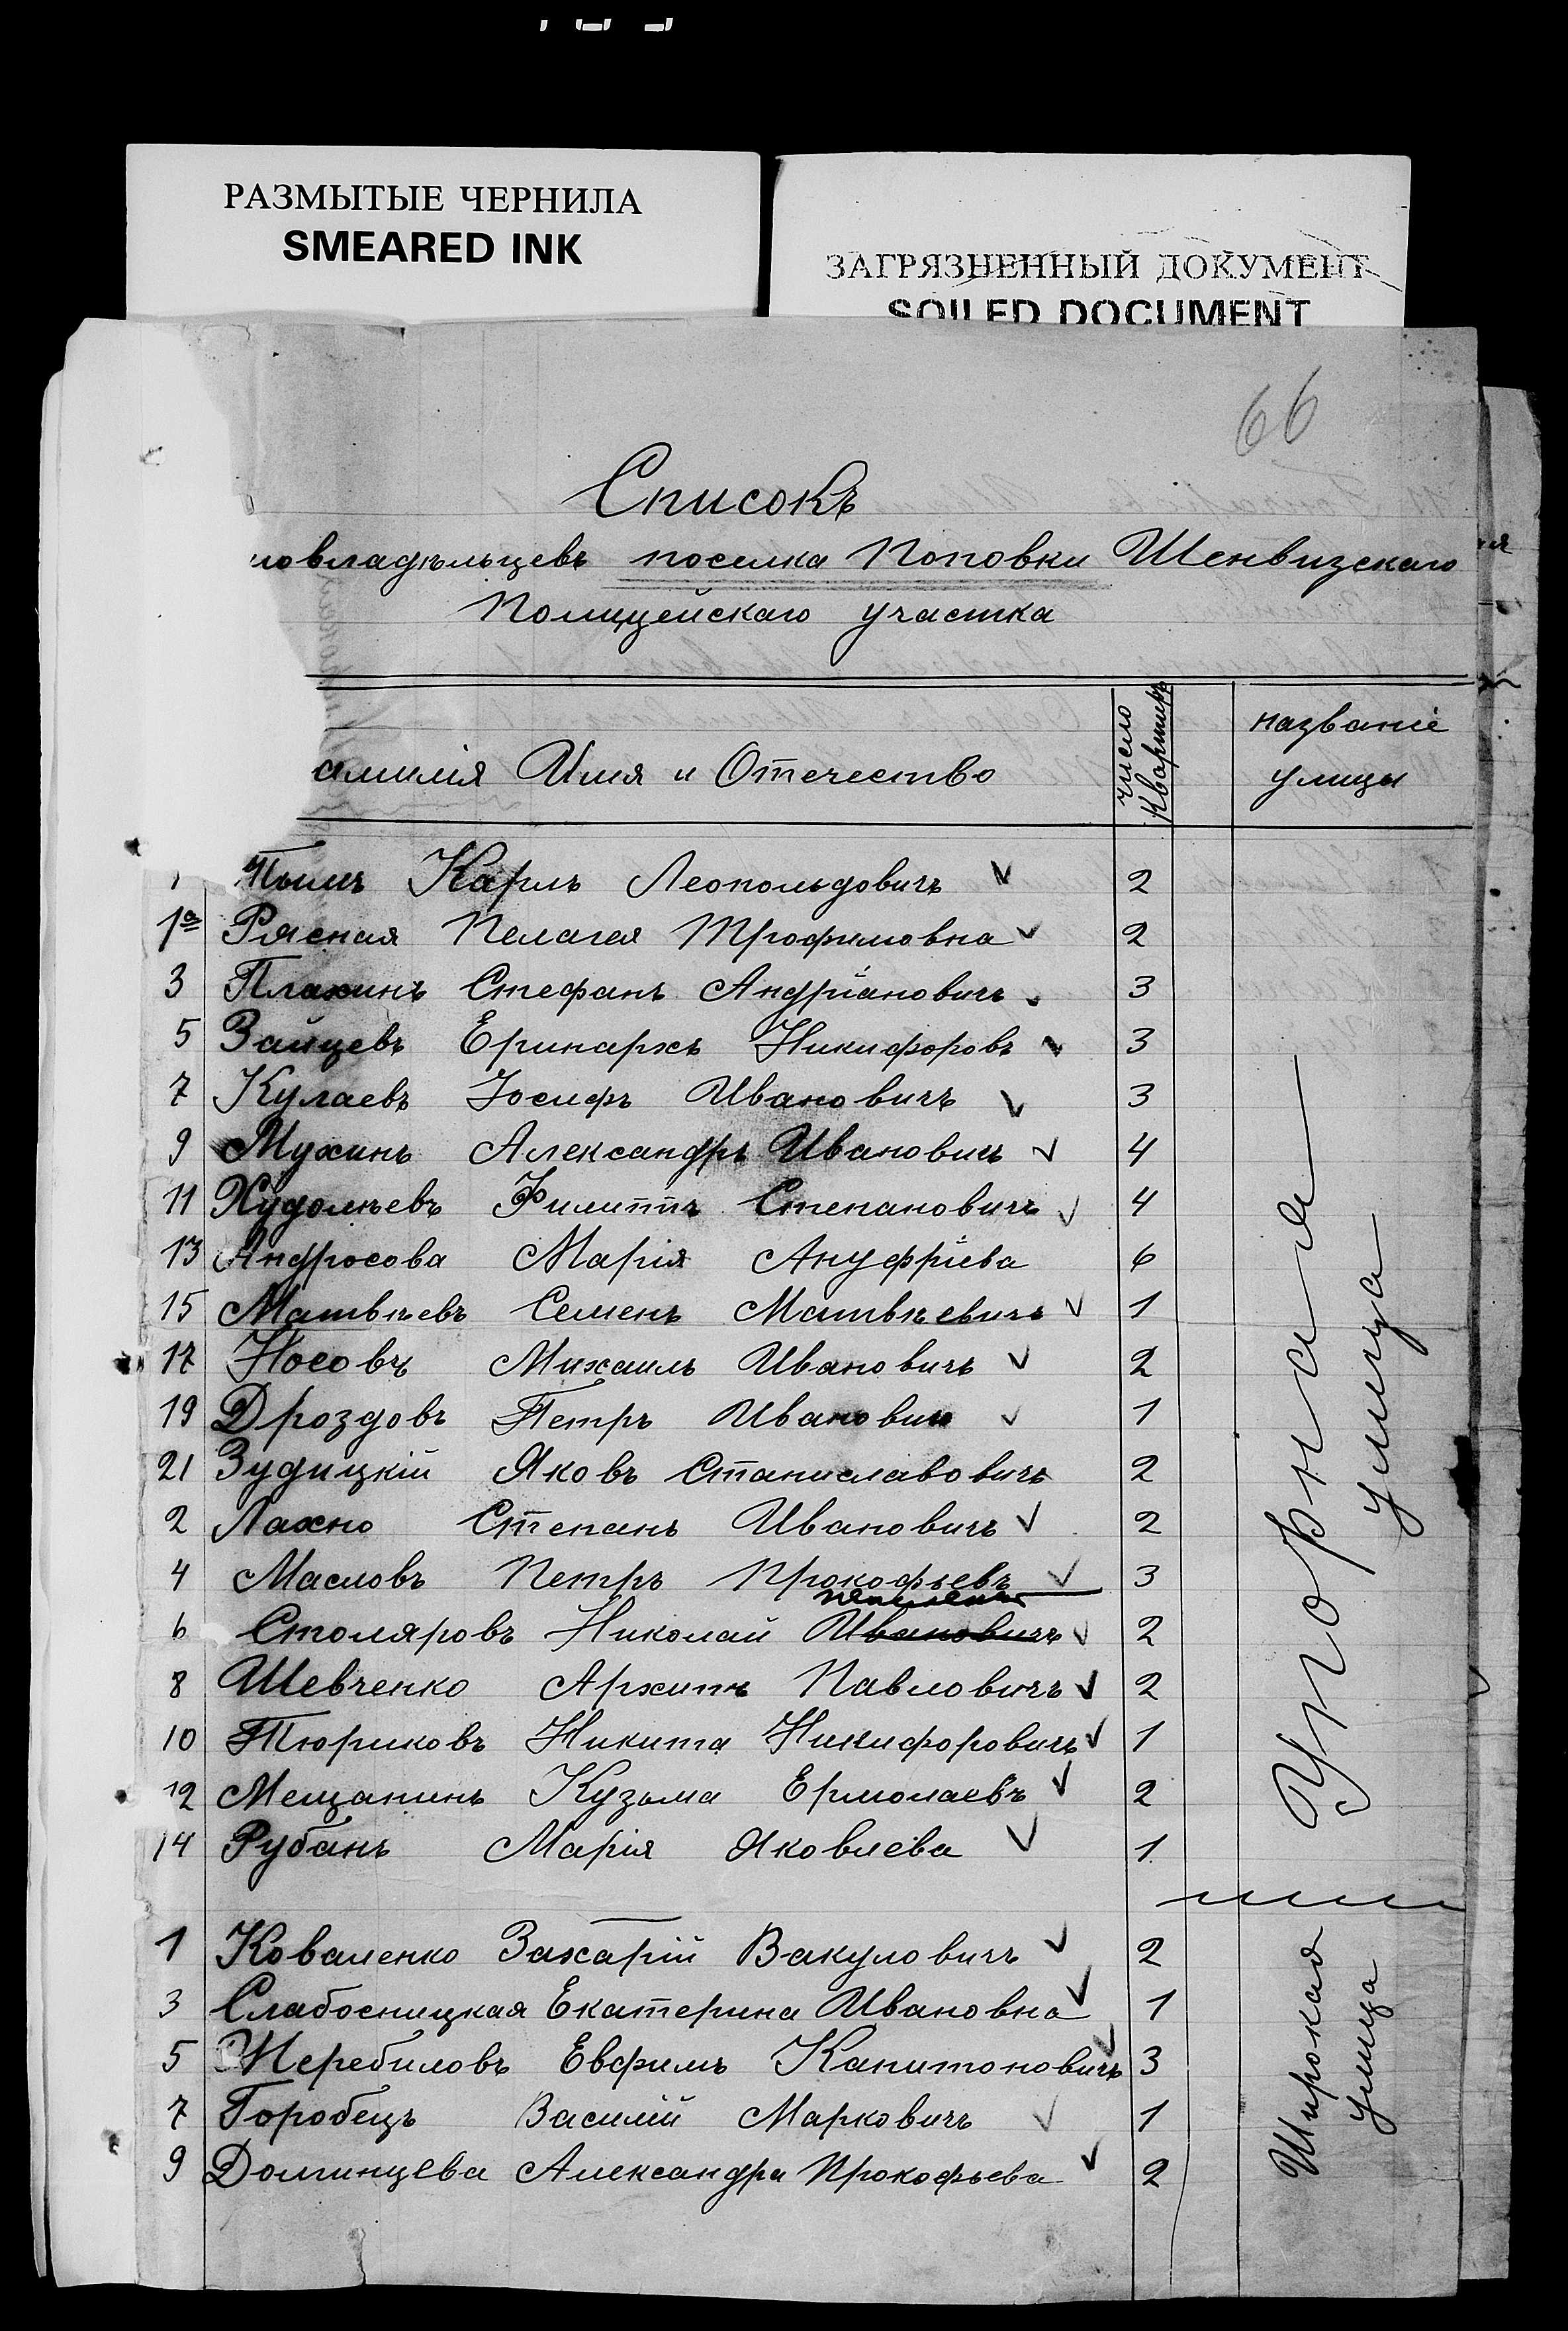 РАЗМЫТЫЕ ЧЕРНИЛА
SMEARED INK
ЗАГРЯЗНЕННЫЙ ДОКУМЕНТ
SOILED DOCUMENT
66
Списокъ
ловладѣльцевъ поселка Поповки Шенвизскаго
Полицейскаго участка
амилія Имя и Отечество число квартиръ названіе улицы
1 Карлъ Леопольдовичъ 2
1а Рясная Пелагея Трофимовна 2
3 Плахинъ Стефанъ Андріановичъ 3
5 Зайцевъ Еринархъ Никифоровъ 3
7 Кулаевъ Іосифъ Ивановичъ 3
9 Мухинъ Александръ Ивановичъ 4
11 Худолѣевъ Филиппъ Степановичъ 4
13 Андросова Марія Ануфріева 6
15 Матвѣевъ Семенъ Матвѣевичъ 1
17 Носовъ Михаилъ Ивановичъ 2
19 Дроздовъ Петръ Ивановичъ 1
21 Зудицкій Яковъ Станиславовичъ 2
2 Лахно Степанъ Ивановичъ 2
4 Масловъ Петръ Прокофьевъ 3
6 Столяровъ Николай Ивановичъ 2
8 Шевченко Архипъ Павловичъ 2
10 Тюриковъ Никита Никифоровичъ 1
12 Мещанинъ Кузьма Ермолаевъ 2
14 Рубанъ Марія Яковлева 1
Угорная
улица
1 Коваленко Захарій Вакуловичъ 2
3 Слабосницкая Екатерина Ивановна 1
5 Жеребиловъ Евфимъ Капитоновичъ 3
7 Горобецъ Василій Марковичъ 1
9 Долгинцева Александра Прокофьева 2
Широкая
улица